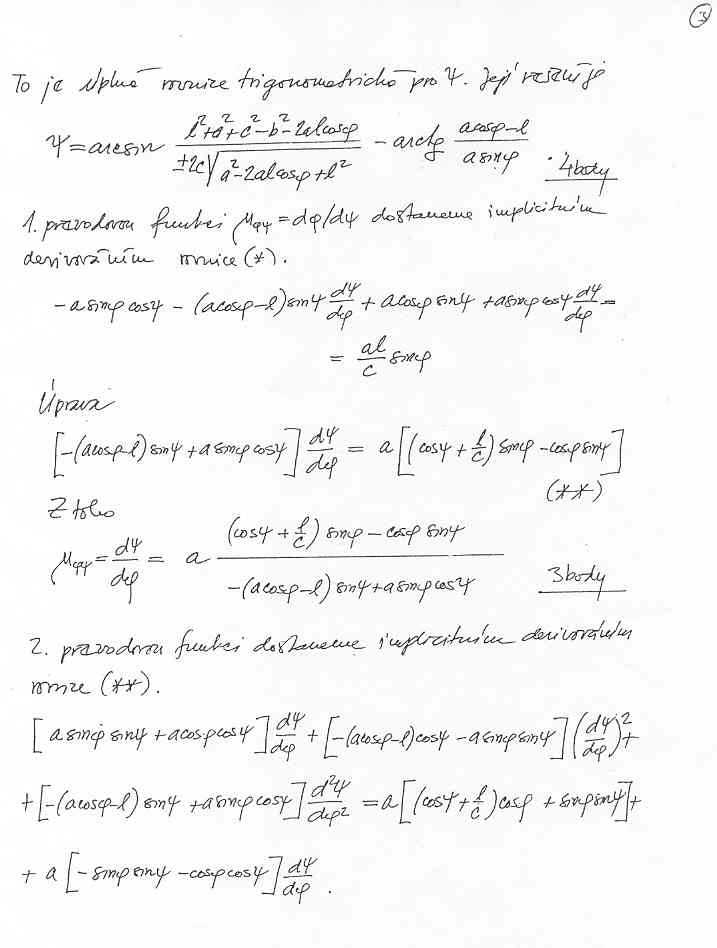 3
To je úplná rovnice trigonometrická pro ψ. Její řešení je
ψ = arcsin (l² + a² + c² - b² - 2al cosφ) / (±2c√(a² - 2al cosφ + l²)) - arctg (a cosφ - l) / (a sinφ) . 4 body
1. převodovou funkci μφψ = dφ/dψ dostaneme implicitním
derivováním rovnice (*).
-a sinφ cosψ - (a cosφ - l) sinψ dψ/dφ + a cosφ sinψ + a sinφ cosψ dψ/dφ =
= al/c sinφ
Úprava
[-(a cosφ - l) sinψ + a sinφ cosψ] dψ/dφ = a [(cosψ + l/c) sinφ - cosφ sinψ]
(**)
Z toho
μφψ = dψ/dφ = a ((cosψ + l/c) sinφ - cosφ sinψ) / (-(a cosφ - l) sinψ + a sinφ cosψ) 3 body
2. převodovou funkci dostaneme implicitním derivováním
rovnice (**).
[a sinφ sinψ + a cosφ cosψ] dψ/dφ + [-(a cosφ - l) cosψ - a sinφ sinψ] (dψ/dφ)² +
+ [-(a cosφ - l) sinψ + a sinφ cosψ] d²ψ/dφ² = a [(cosψ + l/c) cosφ + sinφ sinψ] +
+ a [-sinφ sinψ - cosφ cosψ] dψ/dφ .